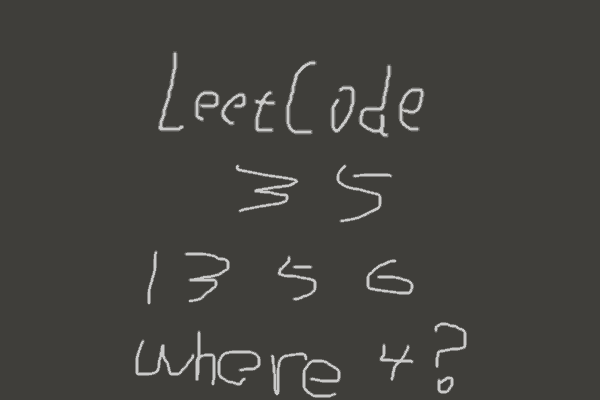 LeetCode
35
1 3 5 6
where 4?